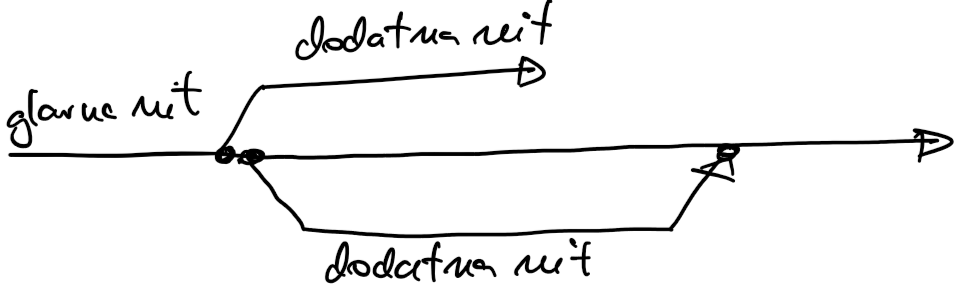 dodatna nit
glavna nit
dodatna nit